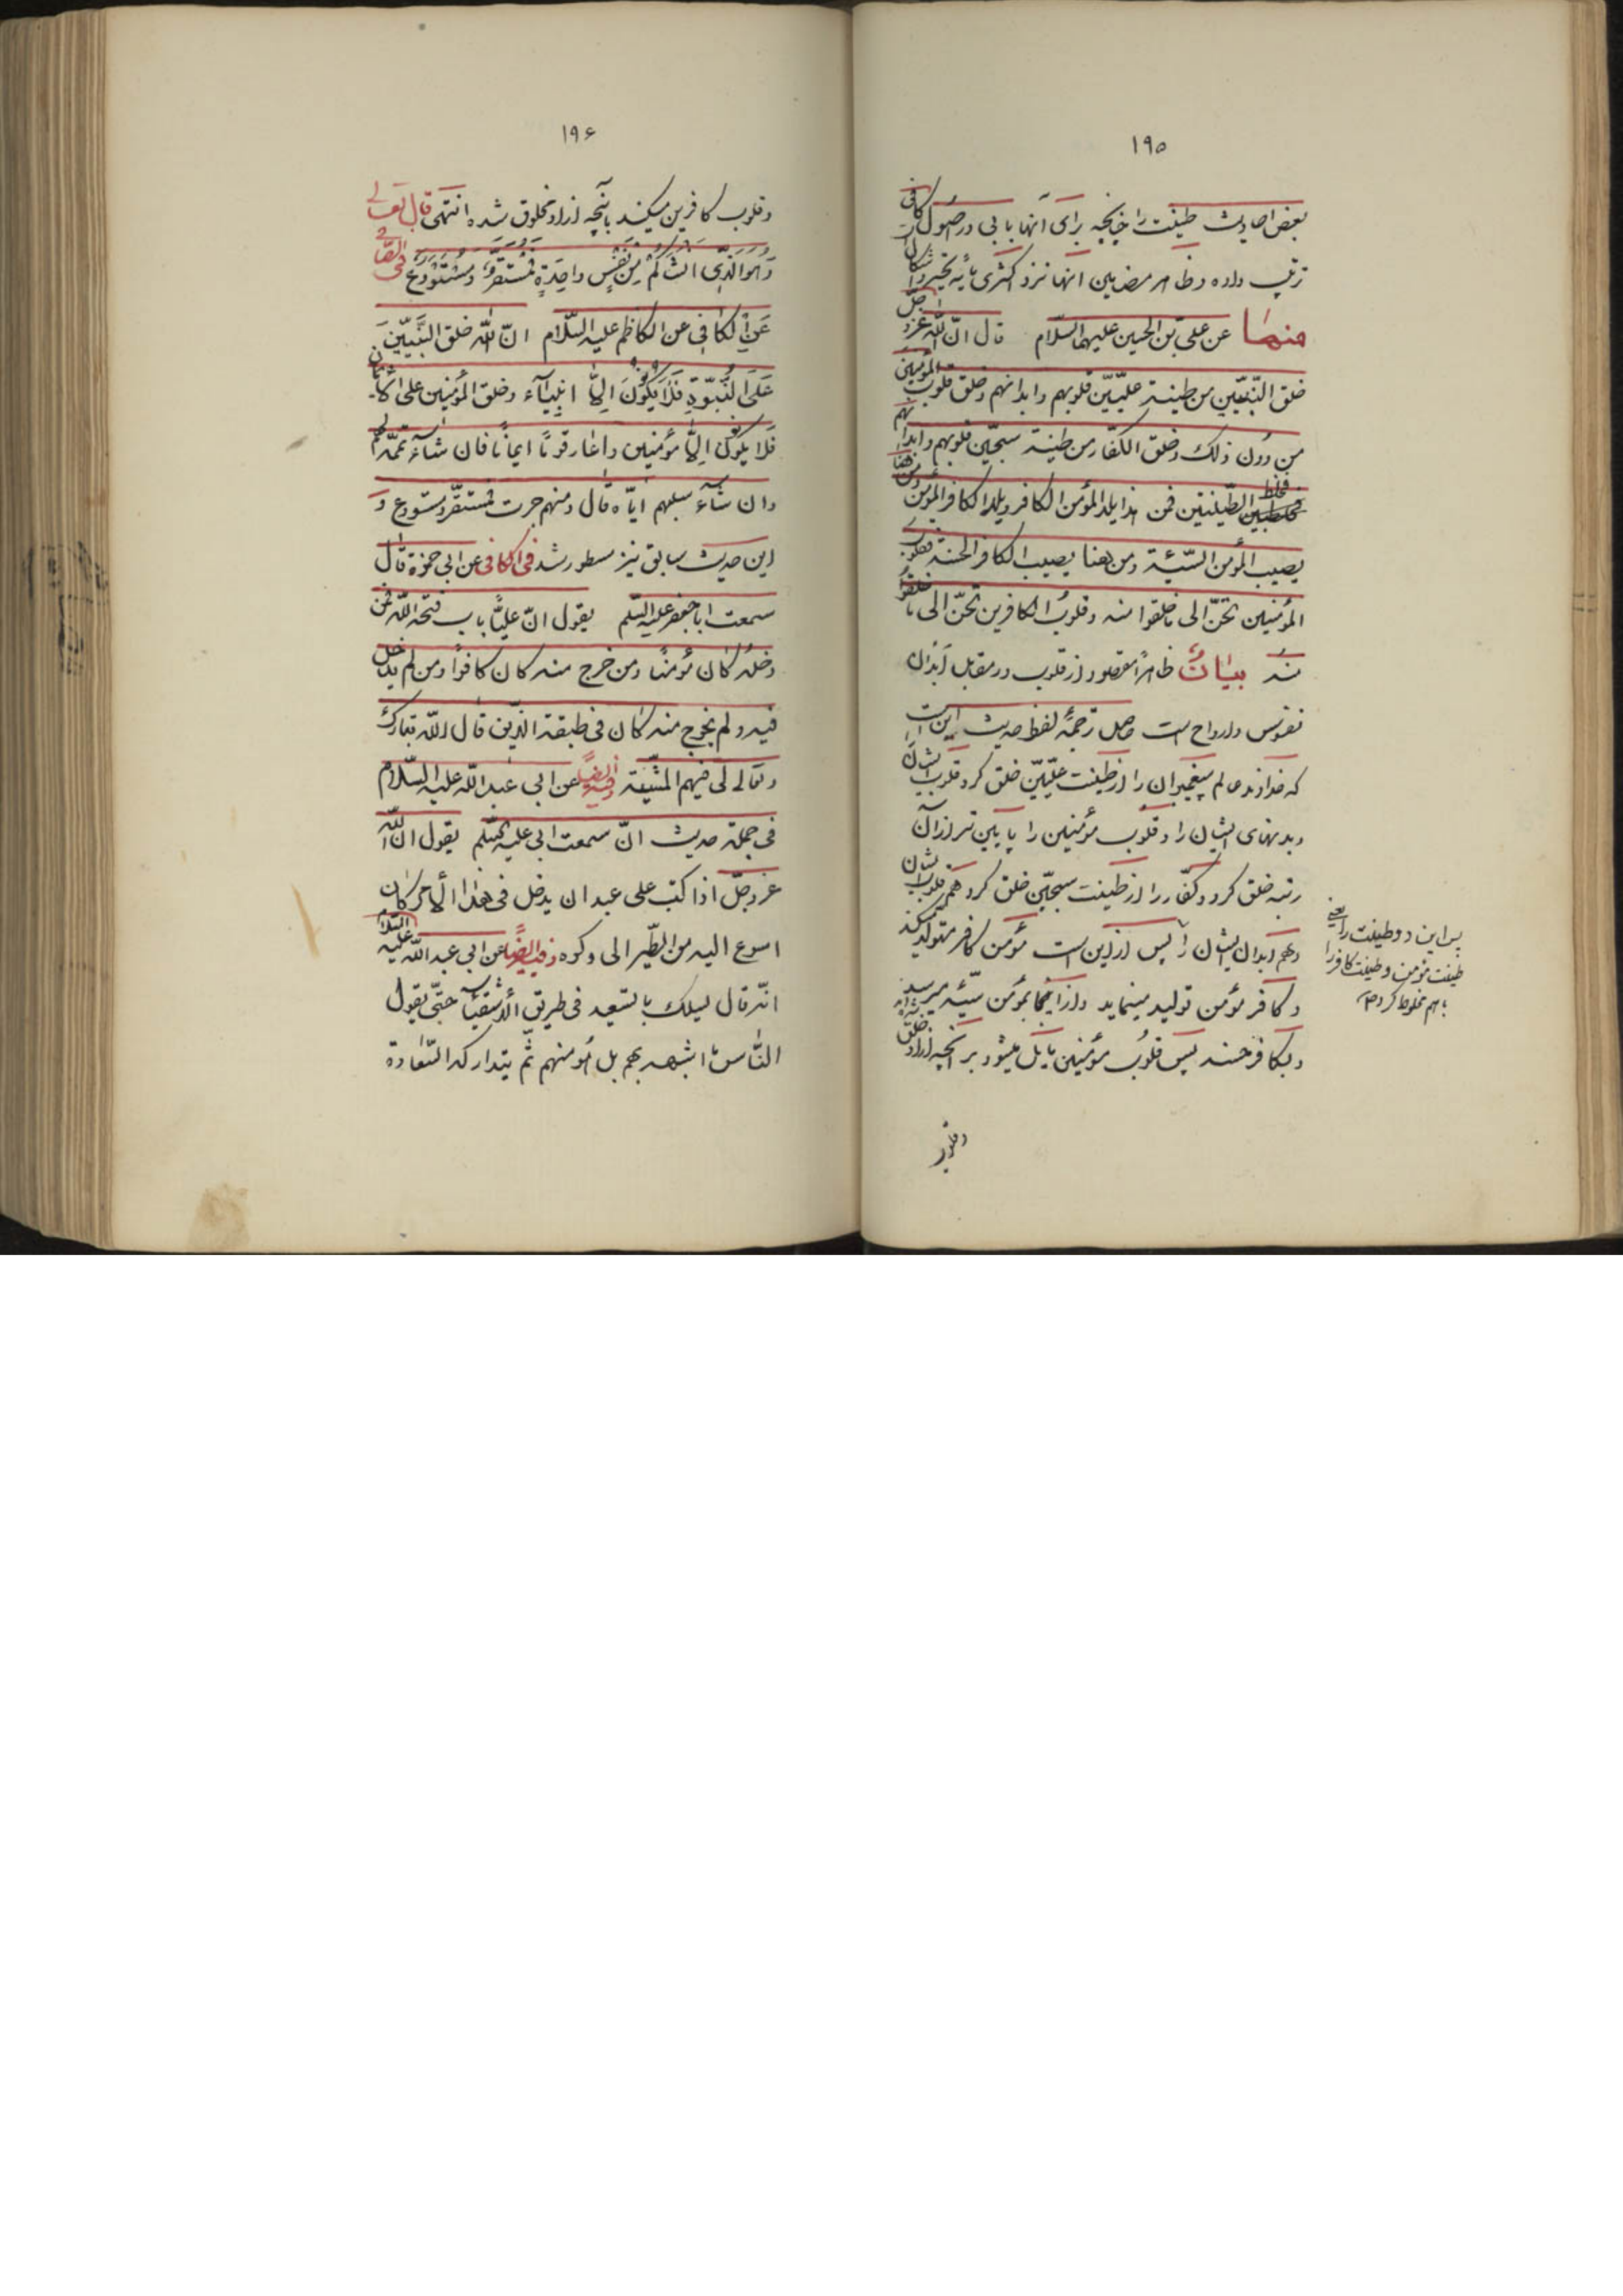 ۱۹۵
بعض احادیث طینت را چنانچه برای آنها بابی در اصول کافی
ترتیب داده و ظاهر مضامین آنها نزد اکثری مایه تحیر و اشکال
منها عن علی بن الحسین علیهما السلام قال انّ اللّه عزّ و جلّ
خلق النّبیّین من طینة علّیّین قلوبهم و ابدانهم و خلق قلوب المؤمنین
من دون ذلک و خلق الکفّار من طینة سجّین قلوبهم و ابدانهم
فخلط بین الطّینتین فمن هذا یلد المؤمن الکافر و یلد الکافر المؤمن و من هٰهنا
یصیب المؤمن السّیّئة و من هٰهنا یصیب الکافر الحسنة فقلوب
المؤمنین تحنّ الی ما خلقوا منه و قلوب الکافرین تحنّ الی ما خلقوا
منه بیانٌ ظاهراً مقصود از قلوب در مقابل ابدان
نفوس و ارواح است حاصل ترجمهٔ لفظ حدیث این است
که خداوند عالم پیغمبران را از طینت علّیّین خلق کرد قلوب ایشان
و بدنهای ایشان را و قلوب مؤمنین را پایین‌تر از آن
رتبه خلق کرد و کفّار را از طینت سجّین خلق کرد هم قلوب ایشان
و هم ابدان ایشان را پس از این است مؤمن کافر متولّد میکند
و کافر مؤمن تولید مینماید و از اینجا بمؤمن سیّئه میرسد
و بکافر حسنه پس قلوب مؤمنین مایل میشود بر آنچه از او خلق شده‌اند
پس این دو طینت را یعنی
طینت مؤمن و طینت کافر را
باهم مخلوط کرده
و قلوب
۱۹۶
و قلوب کافرین میکند بآنچه از او مخلوق شده انتهی قال تعالی
وَ هُوَ الَّذِی اَنْشَاَکُمْ مِنْ نَفْسٍ واحِدَةٍ فَمُسْتَقَرٌّ وَ مُسْتَوْدَعٌ فی الصّافی
عَنِ الکافی عن الکاظم علیه السّلام انّ اللّه خلق النَّبیّینَ
عَلَی النُّبُوَّةِ فَلا یَکُونُونَ اِلاّ انبیآء و خلق المؤمنین علی الایمان
فلا یکونون اِلاّ مؤمنین و اعار قوماً ایماناً فان شآء تمّمه لهم
و ان شآء سلبهم ایّاه قال و منهم جرت فمستقرّ و مستودع و
این حدیث سابق نیز مسطور شد فی الکافی عن ابی حمزة قال
سمعت ابا جعفر علیه السّلم یقول انّ علیّاً باب فتحه اللّه فمن
دخله کان مؤمنا و من خرج منه کان کافراً و من لم یدخل
فیه و لم یخرج منه کان فی طبقة الذّین قال اللّه تبارک
و تعالی لی فیهم المشیّة و فیه ایضاً عن ابی عبد اللّه علیه السّلام
فی جملة حدیث انّ سمعت ابی علیه السّلم یقول ان اللّه
عزّ و جلّ اذا کتب علی عبد ان یدخل فی هذا الأمر کان
اسرع الیه من الطّیر الی وکره و فیه ایضاً عن ابی عبد اللّه علیه السّلام
انّه قال لیسلک بالسّعید فی طریق الأشقیآء حتّی یقول
النّاس ما اشبهه بهم بل هو منهم ثمّ یتدارکه السّعادة